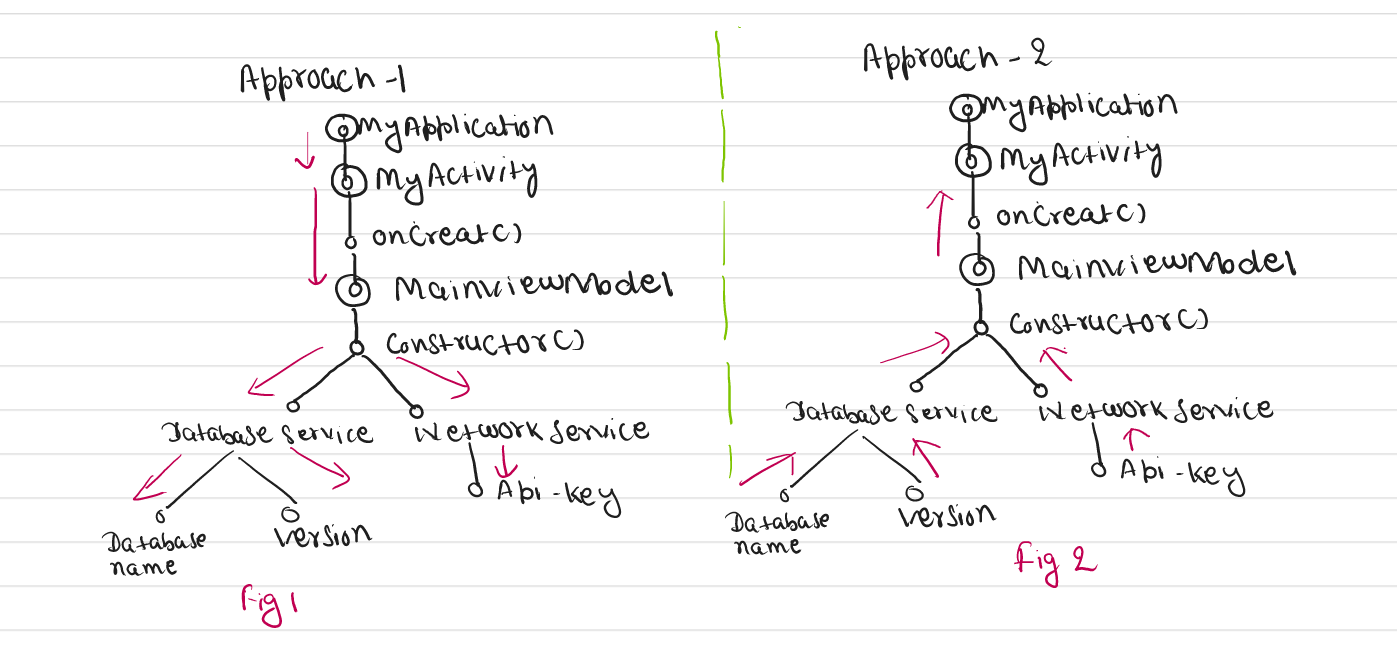 Approach -1
MyApplication
MyActivity
onCreat()
MainviewModel
Constructor()
Database Service
Network Service
Api -key
Database
name
Version
Fig 1
Approach - 2
MyApplication
MyActivity
onCreat()
MainviewModel
Constructor()
Database Service
Network Service
Api -key
Database
name
Version
Fig 2